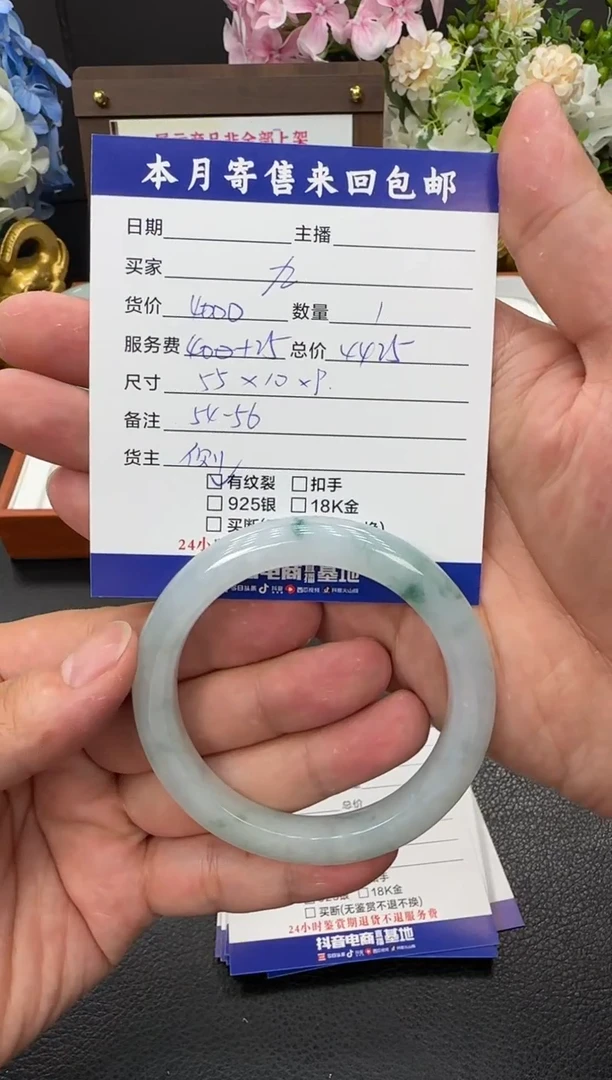 展示商品非全部上架
本月寄售来回包邮
日期 主播
买家 九
货价 4000 数量 1
服务费 400+25 总价 4425
尺寸 55×10×9.
备注 54-56
货主
☑有纹裂 □扣手
□925银 □18K金
□买断(
24小
电商 基地
西瓜视频 抖音火山版
总价
18K金
□买断(无鉴赏不退不换)
24小时鉴赏期退货不退服务费
抖音电商直播基地